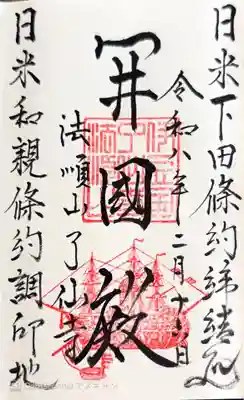 日米下田條約締結
令和八年二月十六日
開國殿
法順山了仙寺
日米和親條約調印地